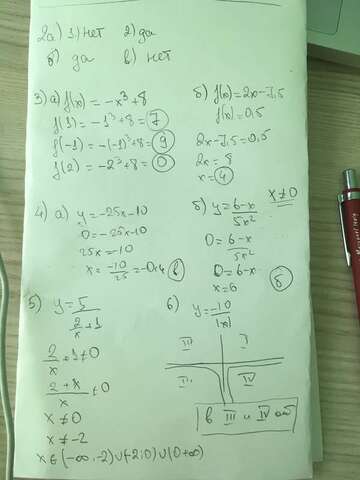 2а) 1) нет 2) да
б) да в) нет
3) а) f(x) = -x³+8
f(1) = -1³+8 = 7
f(-1) = -(-1)³+8 = 9
f(2) = -2³+8 = 0
б) f(x) = 2x-7,5
f(x) = 0,5
2x-7,5 = 0,5
2x = 8
x = 4
4) а) y = -25x-10
0 = -25x-10
25x = -10
x = -10/25 = -0,4 в
б) y = 6-x/5x² x≠0
0 = 6-x/5x²
0 = 6-x
x = 6 б
5) y = 5/(2/x+1)
2/x+1≠0
2+x/x≠0
x≠0
x≠-2
x∈(-∞,-2)∪(-2;0)∪(0+∞)
6) y = -10/|x|
I
IV
в III и IV